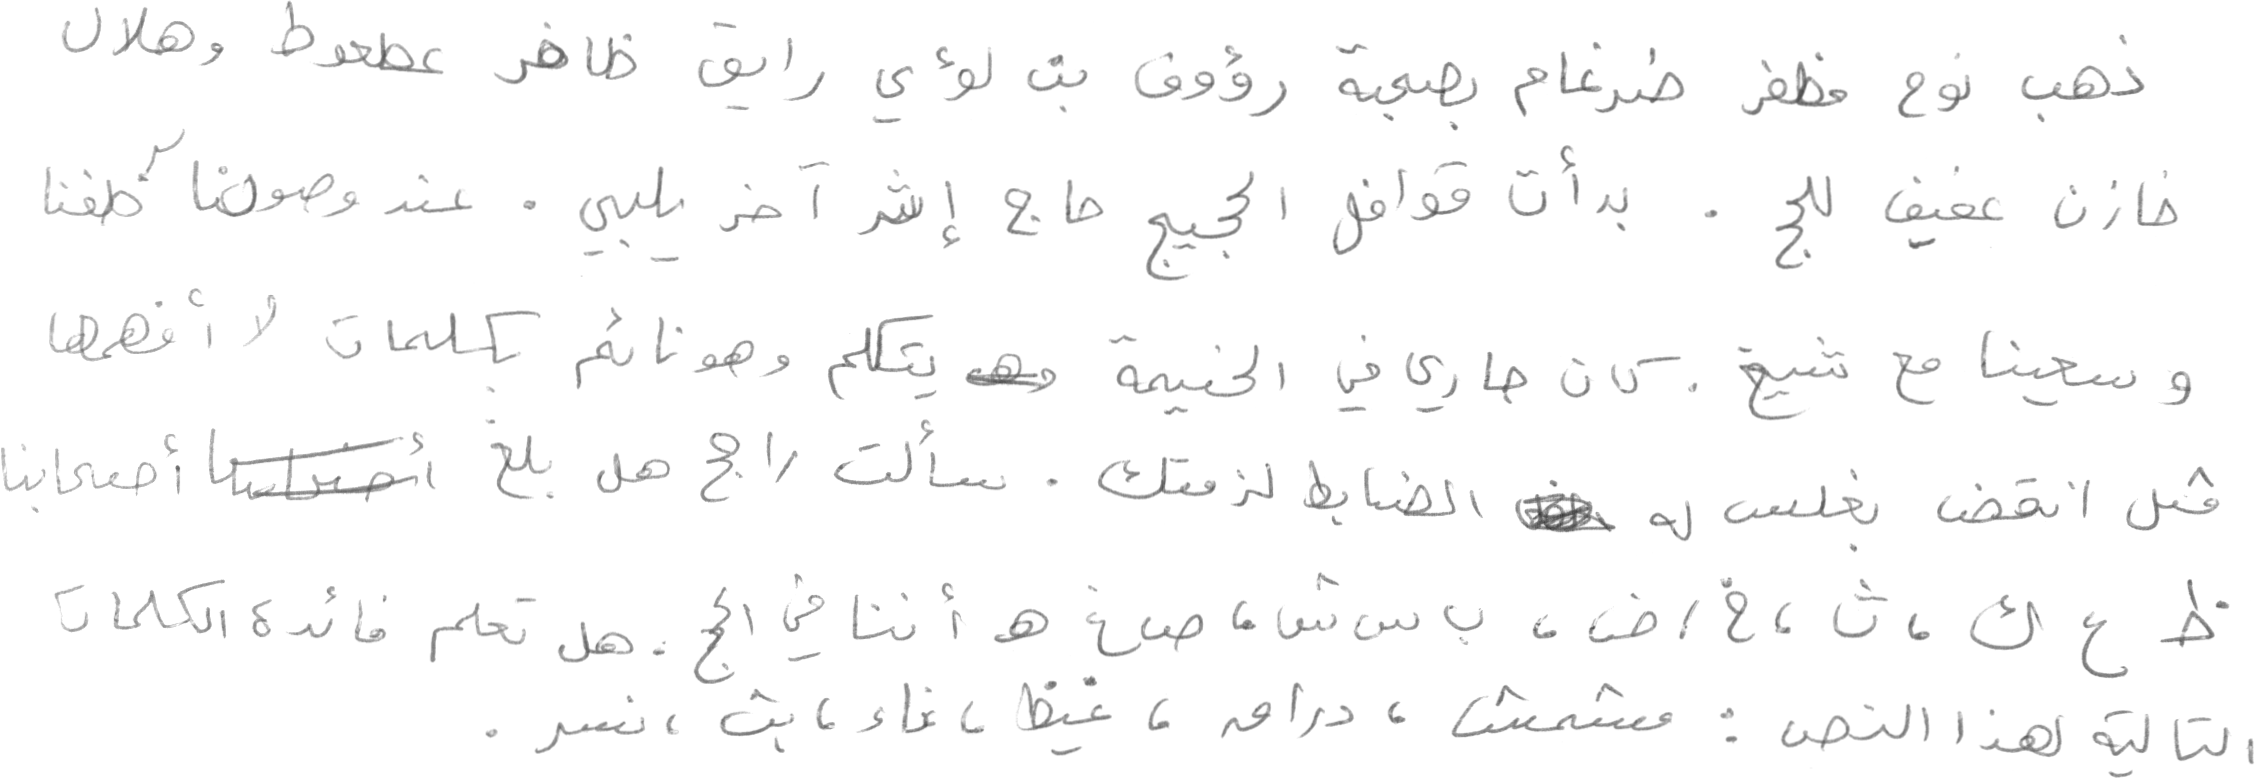 ذهب نوح مظفر ضرغام بصحبة رؤوف بن لؤي رايق ظافر عطعوط وهلال
خازن عفيف للحج . بدأت قوافل الحجيج حاج إثر آخر يلبي . عند وصولنا طفنا
وسعينا مع شيخ . كان جاري في الخيمة يتكلم وهو نائم بكلمات لا أفهمها
مثل انقض بغلس له الضابط لزمتك . سألت راجح هل بلغ أصحابنا
ظ ع ك ، ث ، خ ، ض ، ب س ش ، ص غ ه أننا في الحج . هل تعلم فائدة الكلمات
التالية لهذا النص : مشمش ، درامه ، غيظ ، غاء ، بث ، نسر .